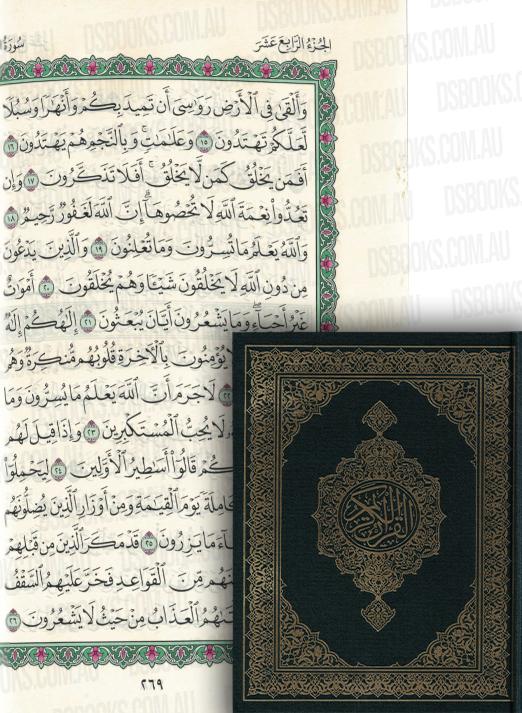 الجزء الرابع عشر
سورة
وَأَلْقَىٰ فِى ٱلْأَرْضِ رَوَٰسِىَ أَن تَمِيدَ بِكُمْ وَأَنْهَٰرًا وَسُبُلًا
لَّعَلَّكُمْ تَهْتَدُونَ ١٥ وَعَلَٰمَٰتٍ ۚ وَبِٱلنَّجْمِ هُمْ يَهْتَدُونَ ١٦
أَفَمَن يَخْلُقُ كَمَن لَّا يَخْلُقُ ۗ أَفَلَا تَذَكَّرُونَ ١٧ وَإِن
تَعُدُّوا۟ نِعْمَةَ ٱللَّهِ لَا تُحْصُوهَآ ۗ إِنَّ ٱللَّهَ لَغَفُورٌ رَّحِيمٌ ١٨
وَٱللَّهُ يَعْلَمُ مَا تُسِرُّونَ وَمَا تُعْلِنُونَ ١٩ وَٱلَّذِينَ يَدْعُونَ
مِن دُونِ ٱللَّهِ لَا يَخْلُقُونَ شَيْـًٔا وَهُمْ يُخْلَقُونَ ٢٠ أَمْوَٰتٌ
غَيْرُ أَحْيَآءٍ ۖ وَمَا يَشْعُرُونَ أَيَّانَ يُبْعَثُونَ ٢١ إِلَٰهُكُمْ إِلَٰهٌ
يُؤْمِنُونَ بِٱلْءَاخِرَةِ قُلُوبُهُم مُّنكِرَةٌ وَهُم
٢٢ لَا جَرَمَ أَنَّ ٱللَّهَ يَعْلَمُ مَا يُسِرُّونَ وَمَا
لَا يُحِبُّ ٱلْمُسْتَكْبِرِينَ ٢٣ وَإِذَا قِيلَ لَهُم
قَالُوٓا۟ أَسَٰطِيرُ ٱلْأَوَّلِينَ ٢٤ لِيَحْمِلُوٓا۟
يَوْمَ ٱلْقِيَٰمَةِ وَمِنْ أَوْزَارِ ٱلَّذِينَ يُضِلُّونَهُم
مَا يَزِرُونَ ٢٥ قَدْ مَكَرَ ٱلَّذِينَ مِن قَبْلِهِمْ
مِّنَ ٱلْقَوَاعِدِ فَخَرَّ عَلَيْهِمُ ٱلسَّقْفُ
ٱلْعَذَابُ مِنْ حَيْثُ لَا يَشْعُرُونَ ٢٦
٢٦٩
القرآن الكريم
DSBOOKS.COM.AU